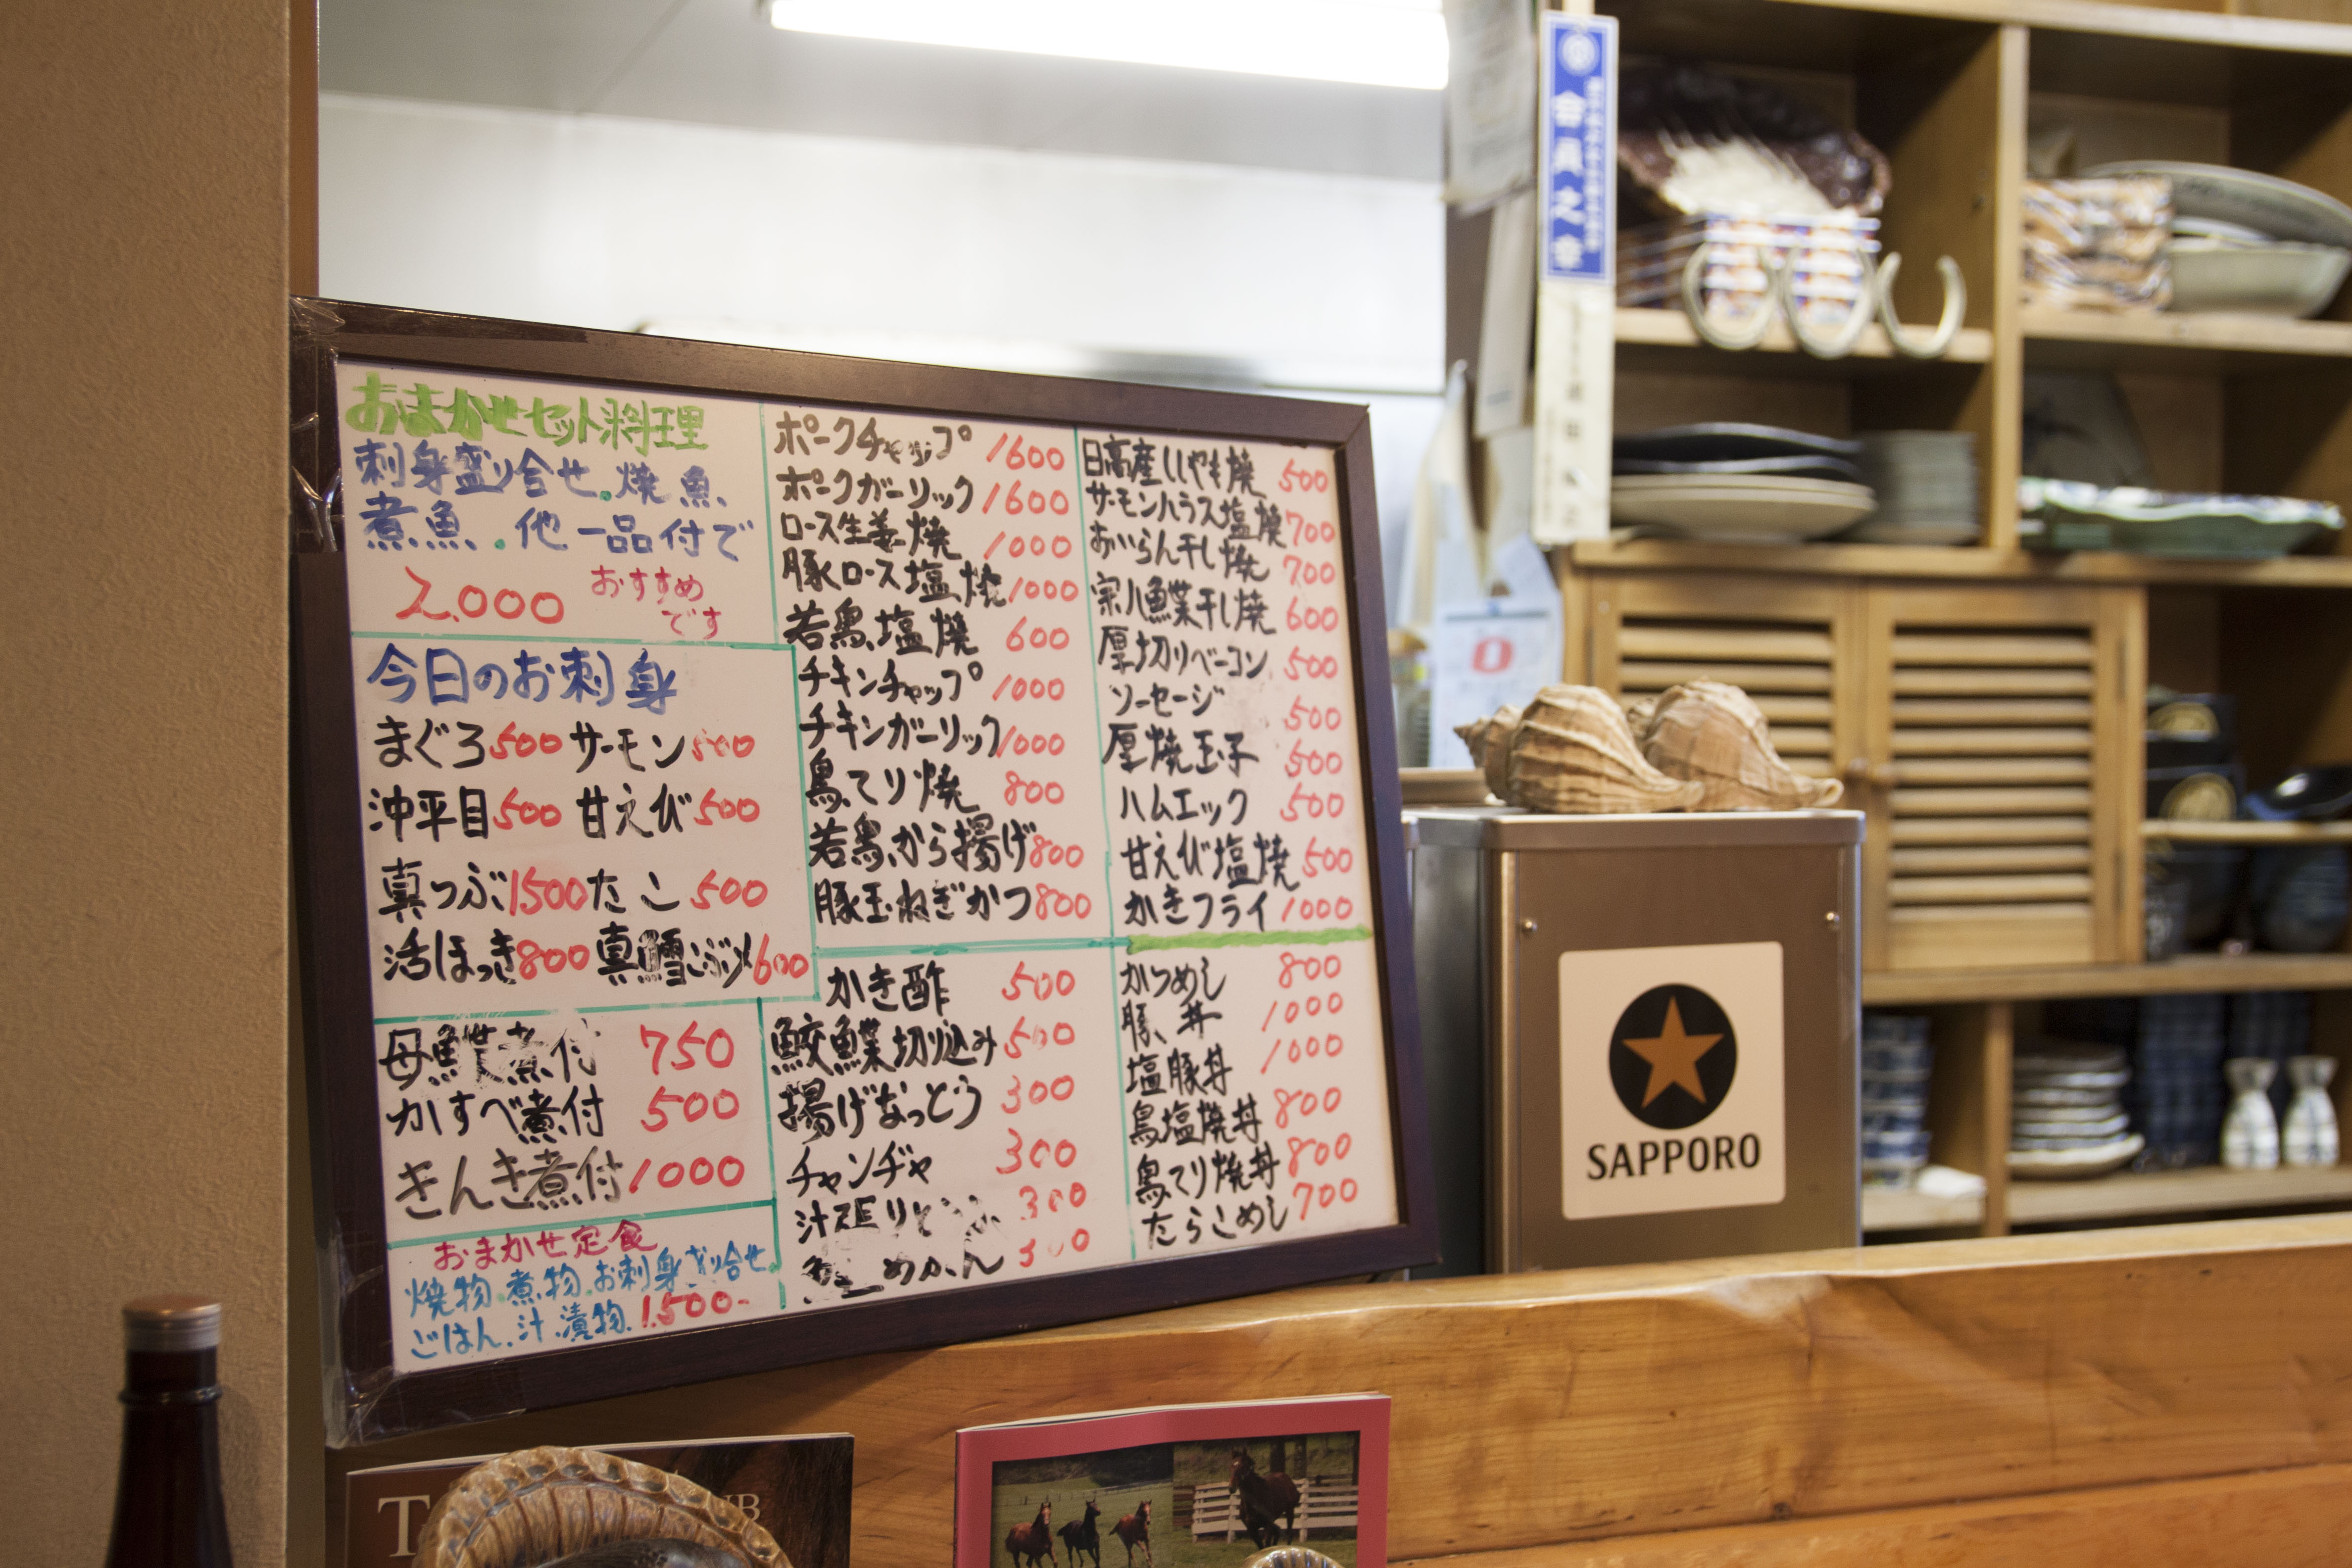 おまかせセット料理
刺身盛り合せ.焼魚、
煮魚.他一品付で
2.000 おすすめ
です
今日のお刺身
まぐろ500 サーモン500
沖平目500 甘えび500
真つぶ1500 たこ500
活ほっき800 真鱈こぶ〆600
母鰈煮付 750
かすべ煮付 500
きんき煮付 1000
おまかせ定食
焼物.煮物.お刺身盛り合せ
ごはん.汁.漬物. 1.500-
ポークチャップ 1600
ポークガーリック 1600
ロース生姜焼 1000
豚ロース塩焼 1000
若鳥塩焼 600
チキンチャップ 1000
チキンガーリック 1000
鳥てり焼 800
若鳥から揚げ 800
豚玉ねぎかつ 800
かき酢 500
鮫鰈切り込み 500
揚げなっとう 300
チャンヂャ 300
300
めかん 300
日高産ししゃも焼 500
サーモンハラス塩焼 700
おいらん干し焼 700
宗八鰈干し焼 600
厚切りベーコン 500
ソーセージ 500
厚焼玉子 500
ハムエッグ 500
甘えび塩焼 500
かきフライ 1000
かつめし 800
豚丼 1000
塩豚丼 1000
鳥塩焼丼 800
鳥てり焼丼 800
たらこめし 700
会員之章
0
SAPPORO